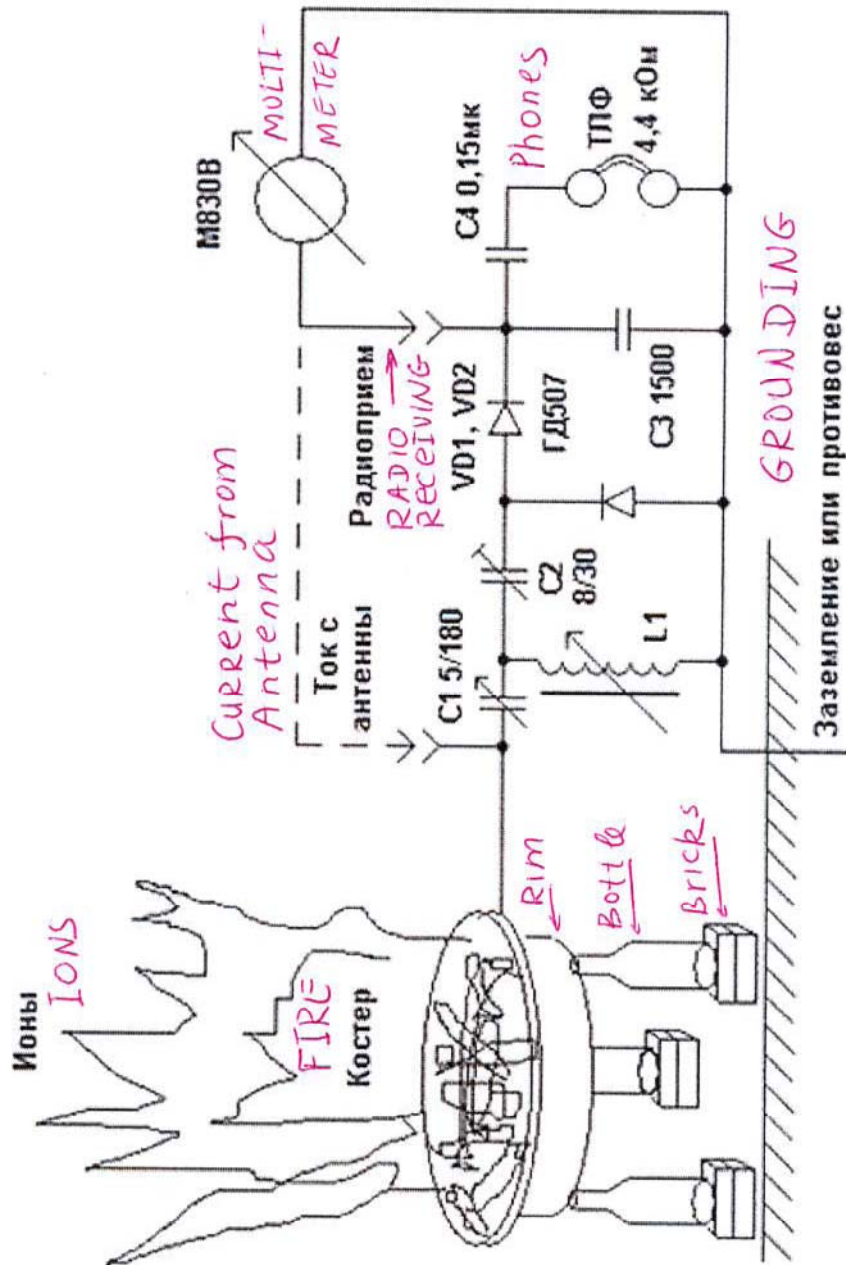 Ионы
IONS
FIRE
Костер
Rim
Bottle
Bricks
Current from
Antenna
Ток с
антенны
Радиоприем
RADIO
RECEIVING
М830В
MULTI-
METER
С1 5/180
С2
8/30
L1
VD1, VD2
ГД507
С3 1500
С4 0,15мк
Phones
ТЛФ
4,4 кОм
GROUNDING
Заземление или противовес